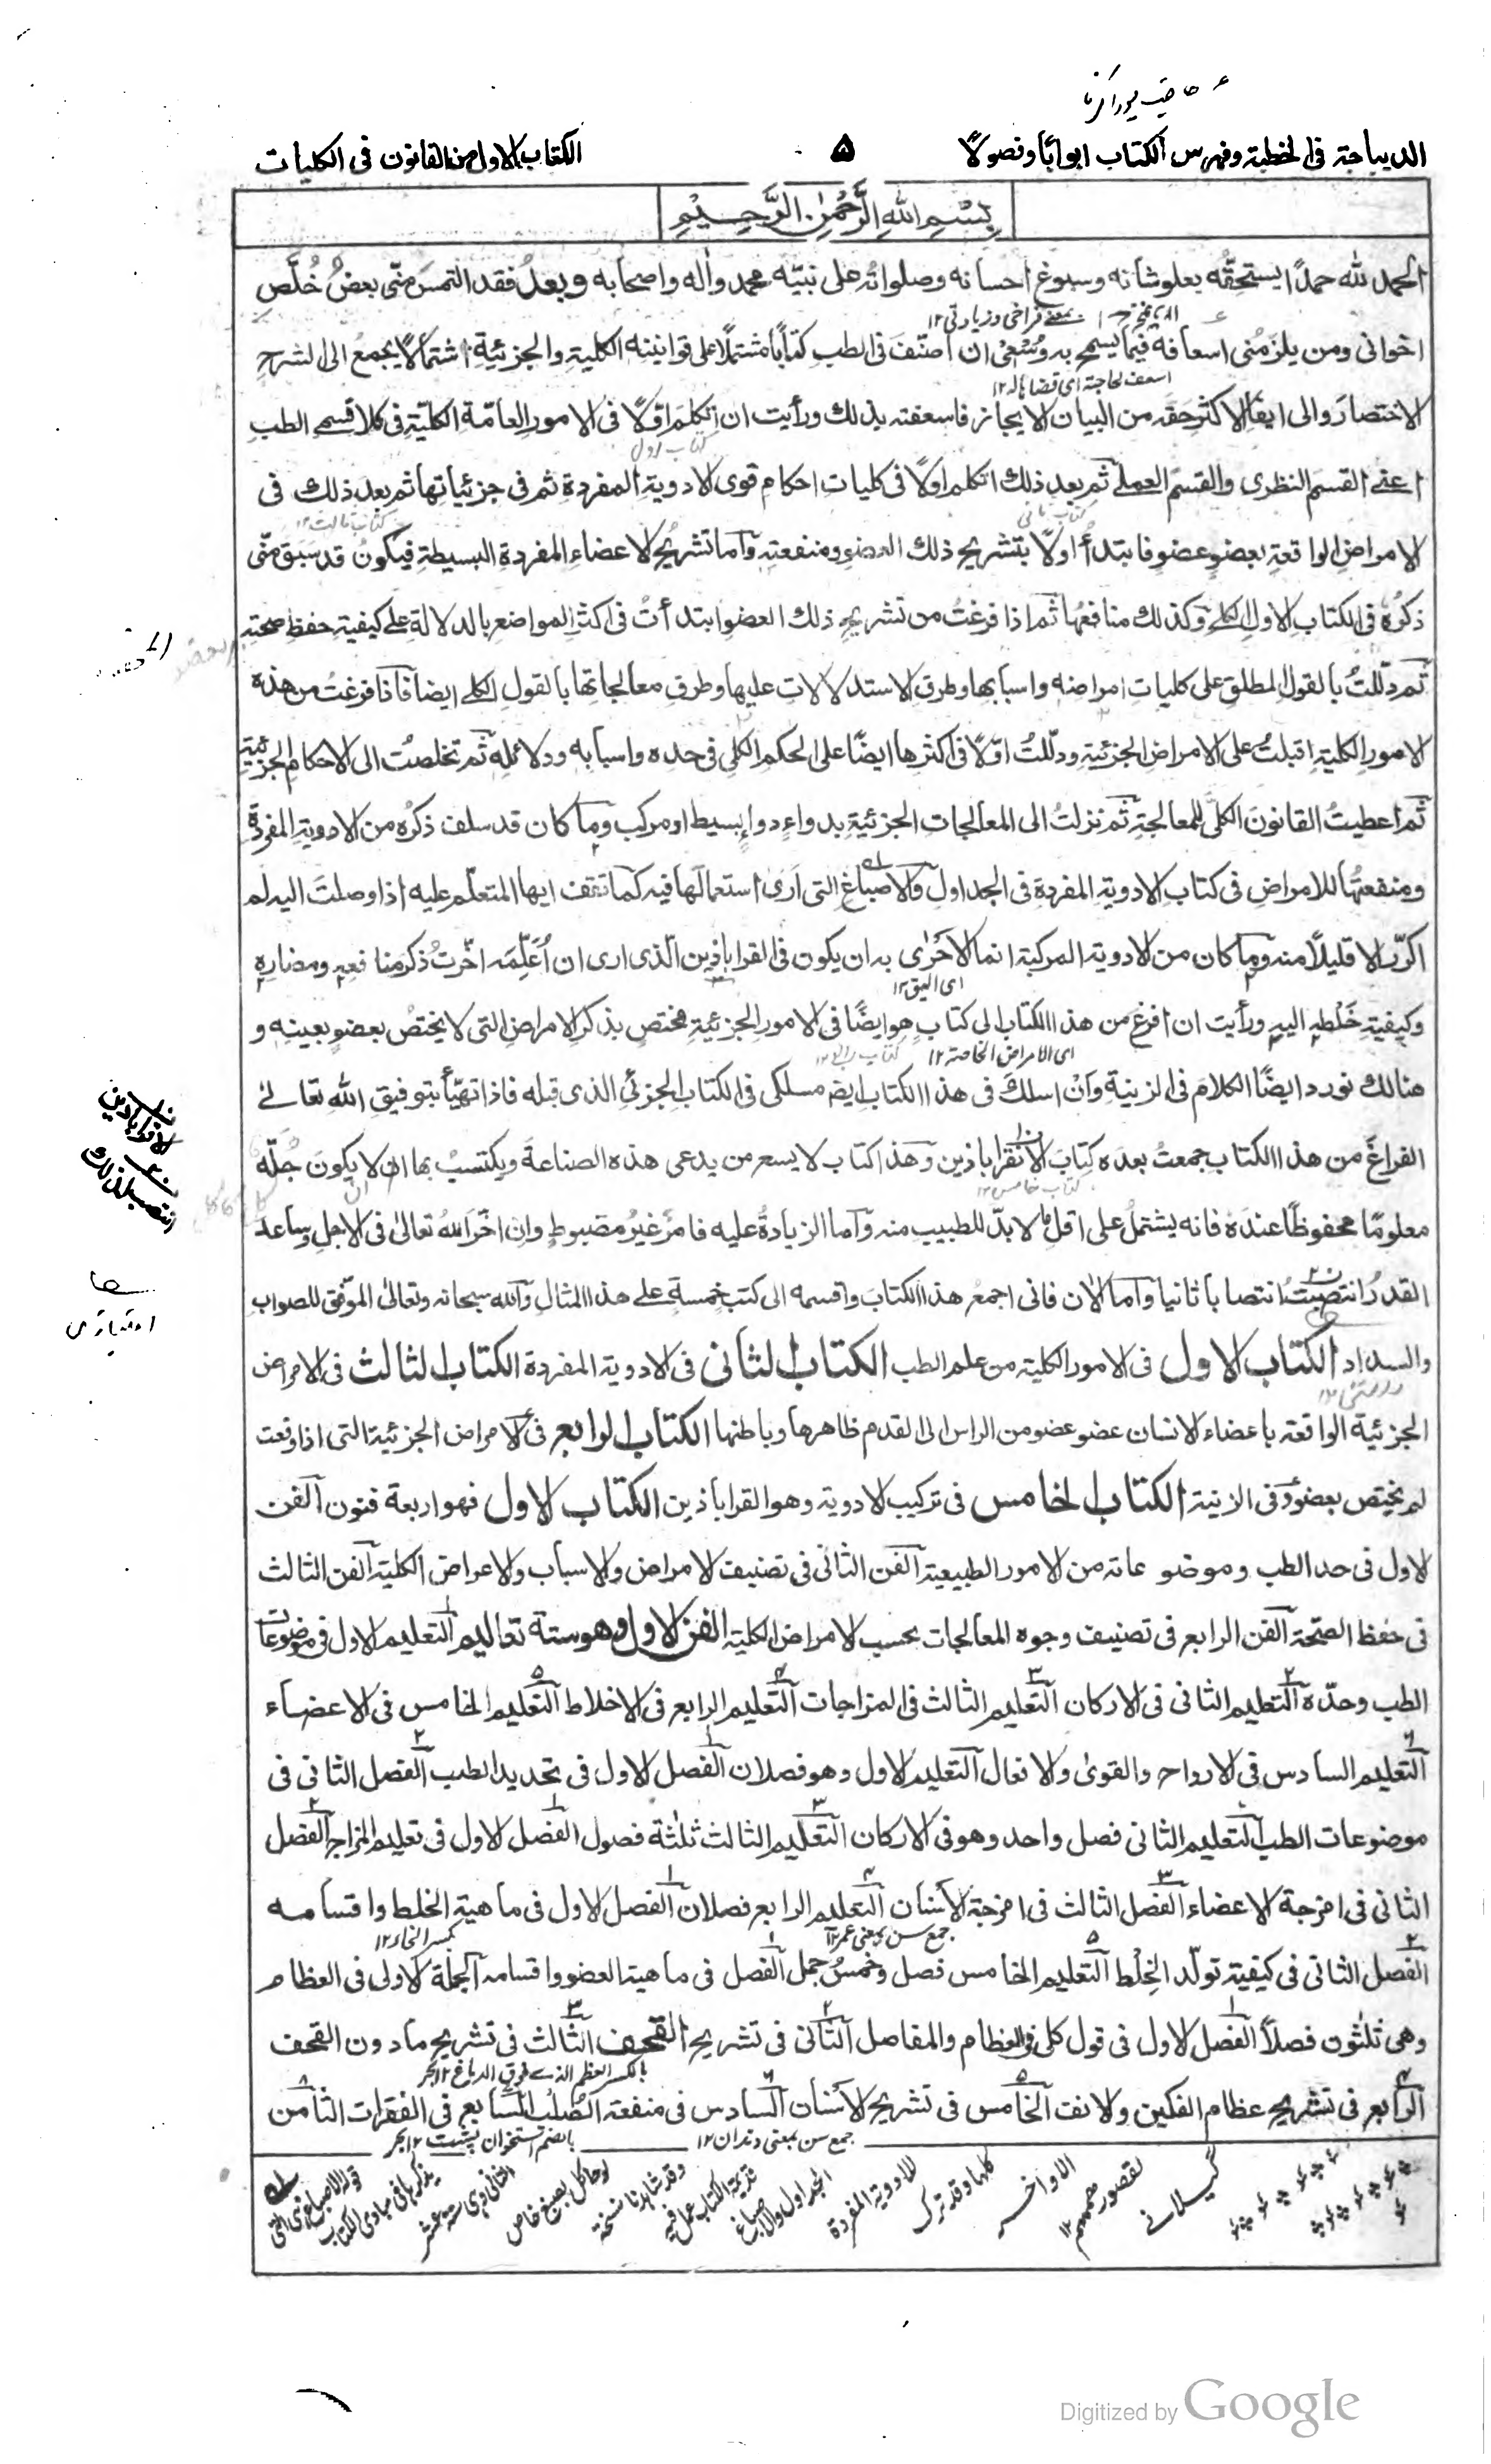 الديباجة فى الخطبة وفهرس الكتاب ابوابًا وفصولًا
۵
الكتاب الاول من القانون فى الكليات
بِسْمِ اللهِ الرَّحْمٰنِ الرَّحِيْمِ
الحمد لله حمدًا يستحقّه بعلو شانه وسبوغ احسانه وصلواته على نبيّه محمد واٰله واصحابه وبعدُ فقد التمسَ منّى بعضُ خُلَّص
بمعنے فراخى وزيادتى ۱۲
اخوانى ومن يلزمُنى اسعافه فيما يسمح به وُسْعِىْ ان اصنّفَ فى الطب كتابًا مشتملًا على قوانينه الكلية والجزئية اشتمالًا يجمعُ الى الشرحِ
اسعف لحاجته اى قضاها له ۱۲
الاختصارَ والى ايفاء الاكثر حَقَّه من البيان الايجاز فاسعفته بذلك ورأيت ان اتكلم اوّلًا فى الامور العامّة الكليّة فى كلا قسمے الطب
كتاب اول
اعنے القسمَ النظرى والقسمَ العملے ثم بعد ذلك اتكلم اولًا فى كليات احكام قوى الادوية المفردة ثم فى جزئياتها ثم بعد ذلك فى
كتاب ثانى
كتاب ثالث ۱۲
الامراض الواقعة بعضوٍ عضوٍ فابتدأُ اولًا بتشريح ذلك العضو ومنفعته واما تشريحُ الاعضاءِ المفردة البسيطة فيكونُ قد سَبَقَ منّى
ذكرُه فى الكتابِ الاول الكلے وكذلك منافعُها ثم اذا فرغتُ من تشريحِ ذلك العضو ابتدأتُ فى اكثر المواضع بالدلالة علے كيفية حفظ صحته
ثم دلّلتُ بالقول المطلق على كليات امراضه واسبابها وطرق الاستدلالات عليها وطرق معالجاتها بالقول الكلے ايضا فاذا فرغتُ من هذه
الامور الكلية اقبلتُ على الامراض الجزئية ودلّلتُ اوّلًا فى اكثرها ايضًا على الحكم الكلى فى حده واسبابه ودلائله ثم تخلصتُ الى الاحكام الجزئية
ثم اعطيتُ القانونَ الكلّى للمعالجة ثم نزلتُ الى المعالجات الجزئية بدواءٍ دواءٍ بسيط او مركب وما كان قد سلف ذكرُه من الادوية المفردة
ومنفعتُها للامراض فى كتاب الادوية المفردة فى الجداول والاصباغِ التى اَرٰى استعمالَها فيه كما تقف ايها المتعلّم عليه اذا وصلتَ اليه لم
اكرّر الا قليلًا منه وما كان من الادوية المركبة انما الاَحْرٰى به ان يكون فى القراباذين الّذى ارى ان اُعَلِّمَه اخّرتُ ذكر منافعه ومضاره
اى اليق ۱۲
وكيفية خَلْطه اليه ورأيت ان افرغ من هذا الكتاب الى كتاب هو ايضًا فى الامور الجزئية مختص بذكر الامراض التى لا يختصُ بعضوٍ بعينه و
اى الامراض الخاصة ۱۲
كتاب رابع ۱۲
هنالك نورد ايضًا الكلام فى الزينة وَاَنْ اسلكَ فى هذا الكتاب ايضا مسلكى فى الكتاب الجزئى الذى قبله فاذا تهيّأ بتوفيق الله تعالےٰ
الفراغُ من هذا الكتاب جمعتُ بعدَه كتابَ الاقراباذين وَهذا كتاب لا يسع من يدعى هذه الصناعةَ ويكتسبُ بها ان لا يكونَ جُلّه
كتاب خامس ۱۲
معلومًا محفوظًا عندَه فانه يشتملُ على اقل ما لا بدّ للطبيب منه واما الزيادةُ عليه فامرٌ غيرُ مضبوطٍ وان اخّرَ اللهُ تعالىٰ فى الاجل وساعد
القدرُ انتصبتُ انتصابًا ثانيا واما الاٰن فانى اجمعُ هذا الكتاب واقسمه الى كتب خمسةٍ علے هذا المثال والله سبحانه وتعالىٰ الموفق للصواب
والسداد الكتاب الاول فى الامور الكلية من علم الطب الكتاب الثانى فى الادوية المفردة الكتاب الثالث فى الامراض
الجزئية الواقعة باعضاء الانسان عضو عضو من الراس الى القدم ظاهرها وباطنها الكتاب الرابع فى الامراض الجزئية التى اذا وقعت
لم يختص بعضو وفى الزينة الكتاب الخامس فى تركيب الادوية وهو القراباذين الكتاب الاول فهو اربعة فنون الفن
الاول فى حد الطب وموضوعاته من الامور الطبيعية الفن الثانى فى تصنيف الامراض والاسباب والاعراض الكلية الفن الثالث
فى حفظ الصحة الفن الرابع فى تصنيف وجوه المعالجات بحسب الامراض الكلية الفن الاول وهو ستة تعاليم التعليم الاول فى موضوعات
الطب وحدّه التعليم الثانى فى الاركان التعليم الثالث فى المزاجات التعليم الرابع فى الاخلاط التعليم الخامس فى الاعضاء
التعليم السادس فى الارواح والقوىٰ والافعال التعليم الاول وهو فصلان الفصل الاول فى تحديد الطب الفصل الثانى فى
موضوعات الطب التعليم الثانى فصل واحد وهو فى الاركان التعليم الثالث ثلٰثة فصول الفصل الاول فى تعليم المزاج الفصل
الثانى فى امزجة الاعضاء الفصل الثالث فى امزجة الاَسْنان التعليم الرابع فصلان الفصل الاول فى ماهية الخلط واقسامه
جمع سن بمعنى عمر ۱۲
بكسر الخاء ۱۲
الفصل الثانى فى كيفية تولّد الخِلْط التعليم الخامس فصل وخمسُ جمل الفصل فى ماهية العضو واقسامه الجملة الاولى فى العظام
وهى ثلٰثون فصلًا الفصل الاول فى قول كلى فى العظام والمفاصل الثانى فى تشريح القحف الثالث فى تشريح ما دون القحف
بالكسر العظم الذے فوق الدماغ ۱۲ بحر
الرابع فى تشريح عظام الفكين والانف الخامس فى تشريح الاَسْنان السادس فى منفعة الصُلب السابع فى الفقرات الثامن
جمع سن بمعنى دندان ۱۲
بالضم استخوان پشت ۱۲ بحر
قوله الاصباغ
يذكرها فى مبادى الكتاب
لوحا كل بصبغ خاص
وقد شاهدنا نسخة
قديمة الكتاب عمل فيه
الجداول والاصباغ
للادوية المفردة
كلها وقد ترك
الاواخر
لقصور هممهم ۱۲
گیلانے
Digitized by Google